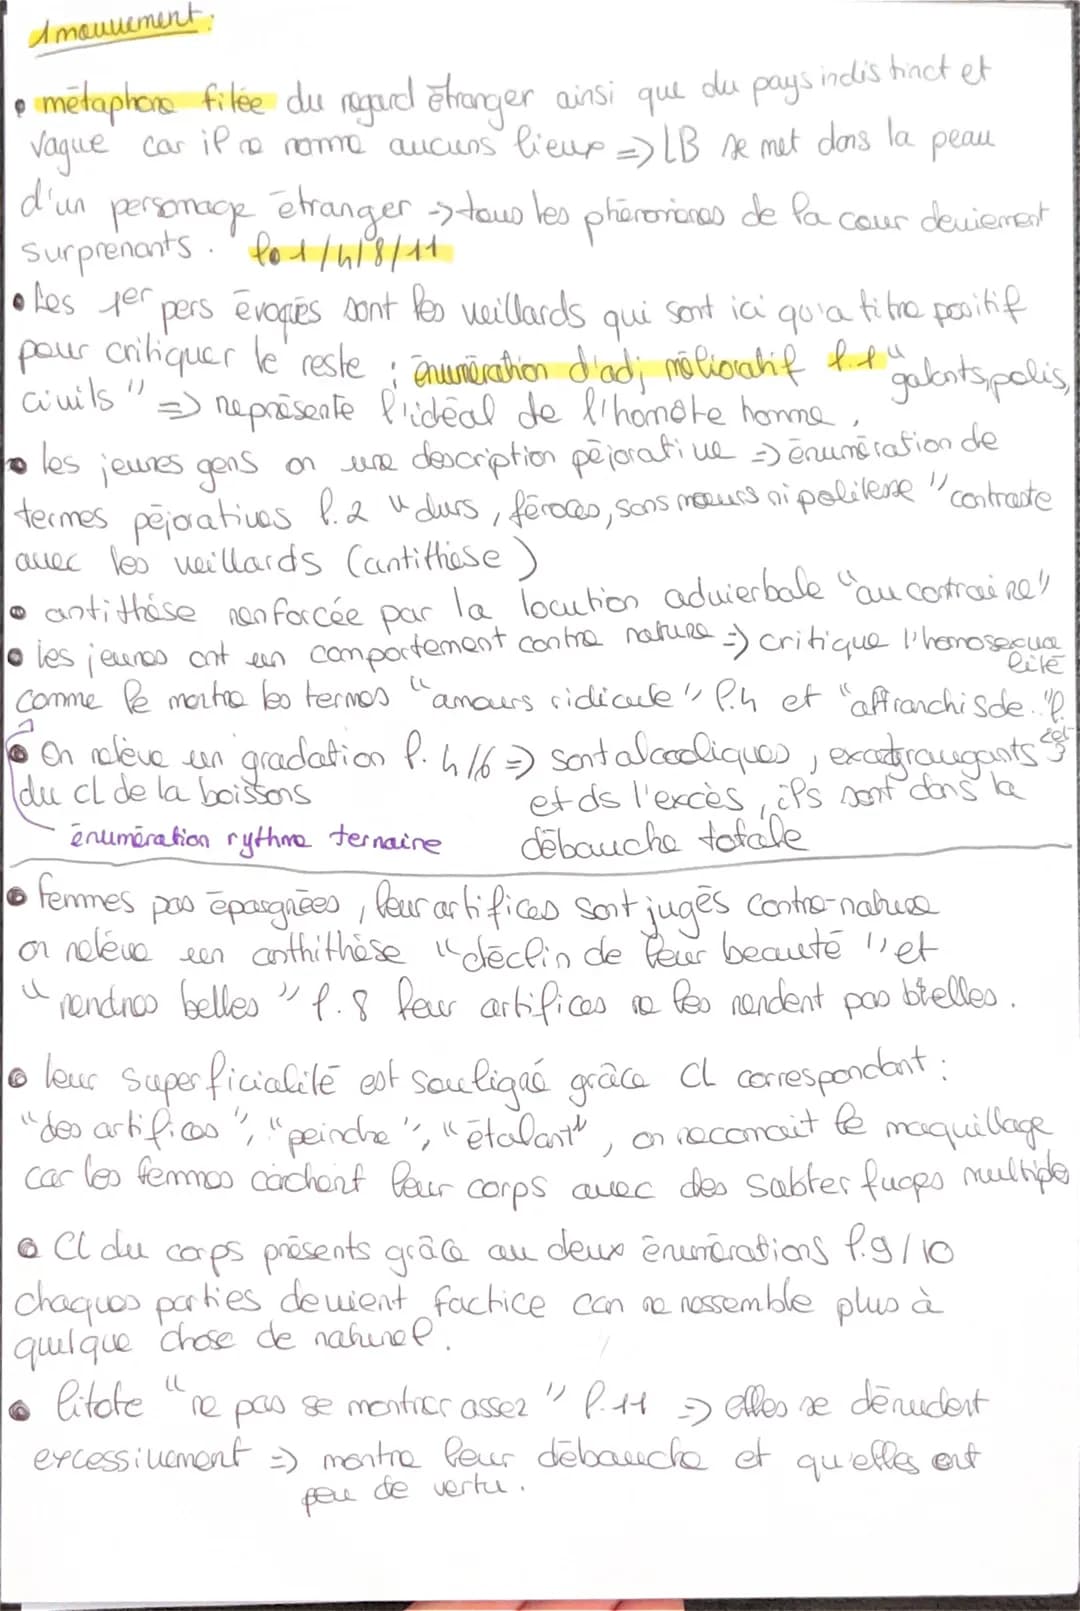 1 mouvement :
• métaphore filée du regard étranger ainsi que du pays indistinct et
vague car il ne nomme aucuns lieux => LB se met dans la peau
d'un personage étranger -> tous les phénomènes de la cour deviennent
surprenants. l. 1/4/8/11
• Les 1er pers évoqués sont les vieillards qui sont ici qu'a titre positif
pour critiquer le reste ; énumération d'adj mélioratif l.1 "galants, polis,
civils" => représente l'idéal de l'honnête homme.
• les jeunes gens on une description péjorative => énumération de
termes péjoratives l.2 "durs, féroces, sans mœurs ni politesse" contraste
avec les vieillards (antithèse)
• antithèse renforcée par la locution advierbale "au contraire"
• les jeunes ont un comportement contre nature => critique l'homosexua
lité
comme le montre les termes "amours ridicule" l.4 et "affranchis de." l.
2 et 3
• On relève un gradation l. 4/6 => sont alcooliques, extravagants
du cl de la boissons et ds l'excès, ils sont dans la
énumération rythme ternaire débauche totale
• femmes pas épargnées, leur artifices sont jugés contre-nature
on relève un anthithèse "déclin de leur beauté" et
"rendres belles" l.8 leur artifices ne les rendent pas belles.
• leur superficialité est souligné grâce CL correspondant :
"des artifices", "peindre", "étalant", on reconnait le maquillage
car les femmes cachent leur corps avec des subterfuges multiple
• Cl du corps présents grâce au deux énumérations l.9/10
chaques parties devient factice car ne ressemble plus à
quelque chose de naturel.
• litote "ne pas se montrer assez" l.11 => elles se dénudent
excessivement => montre leur débauche et qu'elles ont
peu de vertu.